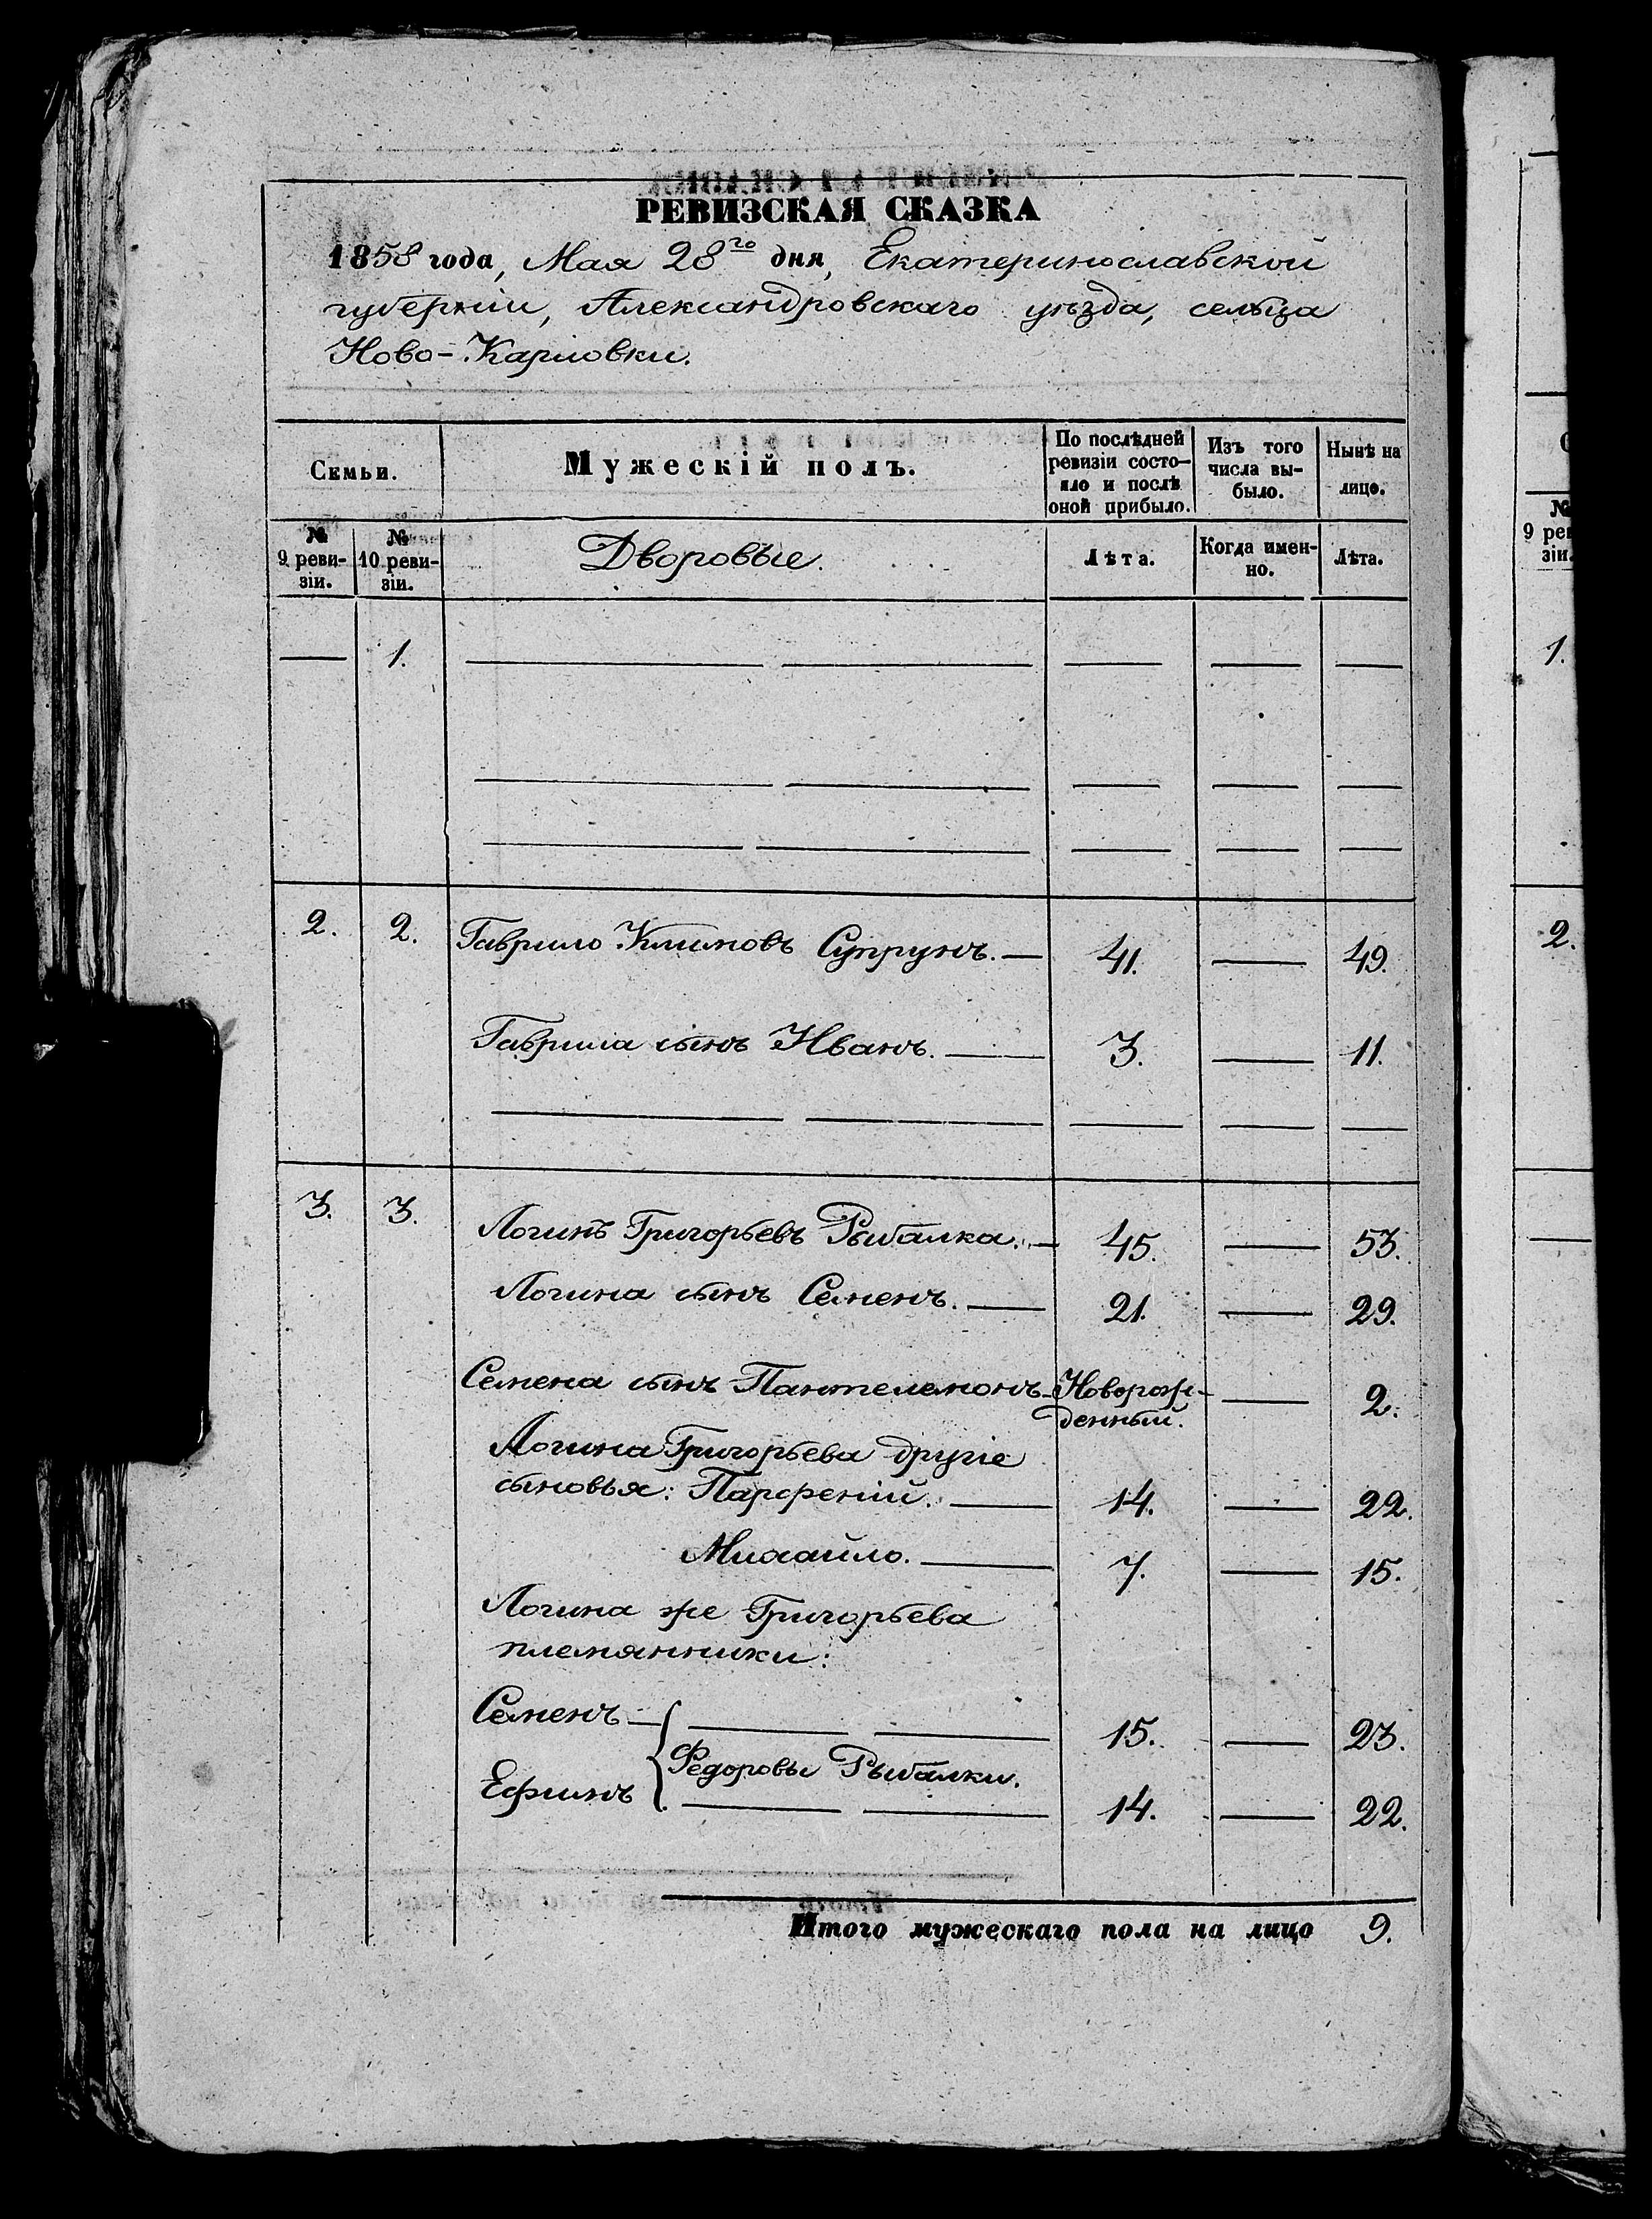 РЕВИЗСКАЯ СКАЗКА
1858 года, Мая 28го дня, Екатеринославской
губернiи, Александровскаго уѣзда, сельца
Ново-Карловки.
Семьи.
Мужескiй полъ.
По послѣдней ревизiи состо-яло и послѣ оной прибыло.
Изъ того числа вы-было.
Нынѣ на лице.
№ 9 реви-зiи.
№ 10 реви-зiи.
Дворовые.
Лѣта.
Когда имен-но.
Лѣта.
— 1. — — — — —
— — — — —
— — — — —
2. 2. Гаврило Климовъ Супрунъ. — 41. — 49.
Гаврила сынъ Иванъ. — 3. — 11.
— — — — —
3. 3. Логинъ Григорьевъ Рыбалка. — 45. — 53.
Логина сынъ Семенъ. — 21. — 29.
Семена сынъ Пантелемонъ — Новорож-денный. — 2.
Логина Григорьева другiе
сыновья: Парфенiй. — 14. — 22.
Михайло. — 7. — 15.
Логина же Григорьева
племянники:
Семенъ — { — — 15. — 23.
Федоровы Рыбалки.
Ефимъ — — 14. — 22.
Итого мужескаго пола на лицо 9.
№
9 рев
зiи.
1.
2.